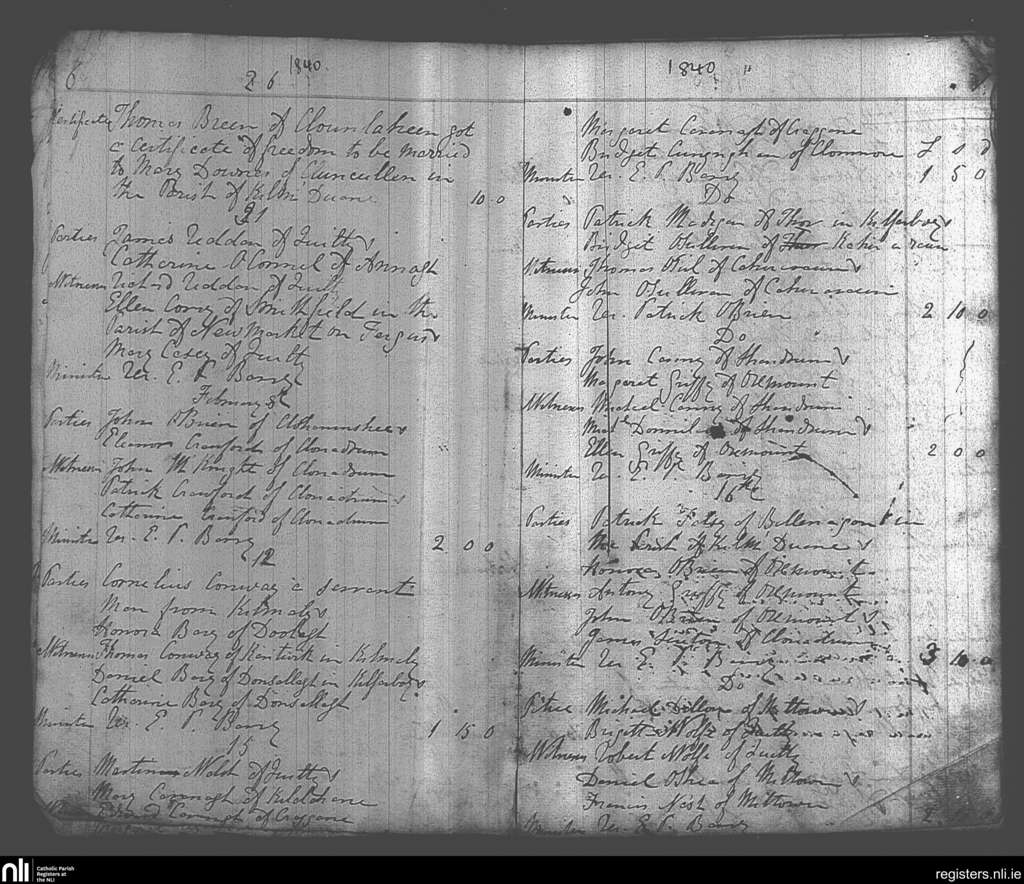 6
26 1840
Certificate Thomas Breen of Clounlaheen got
a certificate of freedom to be married
to Mary Downes of in
the Parish of Kilm Duane 10 0
21
Parties James Reddan of Quilty
Catherine O Connel of Annagh
Witness Richd Reddan of Quilty
Ellen Corry of Smithfield in the
Parish of New Market on Fergus
Mary Casey of Quilty
Minister Rev. E. P. Barry
February 8th
Parties John O'Brien of
Eleanor Crawford of Clonadrum
Witness John Mc Knight of Clonadrum
Patrick Crawford of Clonadrum
Catherine Crawford of Clonadrum
Minister Rev. E. P. Barry 2 0 0
12
Parties Cornelius Conway a servant
Man from Kilmaly
Honora Barry of Doolagh
Witness Thomas Conway of Kanturk in Kilmaly
Daniel Barry of Donsallagh in Kilfarboy
Catherine Barry of Donsallagh
Minister Rev. E. P. Barry 1 15 0
15
Parties Martin Welsh of Quilty
Mary Cavanagh of
Cavanagh of Craggane
1840 "
Margaret Cavanagh of Craggane
Bridget of Clonmore £ s d
Minister Rev. E. P. Barry 1 5 0
Do
Parties Patrick Madigan of in Kilfarboy
Bridget OSullivan of
Witness Thomas of
John OSullivan of
Minister Rev. Patrick OBrien 2 10 0
Do
Parties John Canny of Shandrum
Margaret Griffy of
Witness Michael Canny of Shandrum
of Shandrum
Ellen Griffy of 2 0 0
Minister Rev. E. P. Barry
16th
Parties Patrick of in
the Parish of Kilm Duane
Honora OBrien of
Witness Antony Griffy of
John OBrien of
James of Clonadrum
Minister Rev. E. P. Barry 3 10 0
Do
Michael Dillon of Miltown
Wolfe of Quilty
Witness Robert Wolfe of Quilty
Daniel OShea of Miltown
Francis of Miltown
Minister Rev. E. P. Barry 2
nli
Catholic Parish
Registers at
the NLI
registers.nli.ie